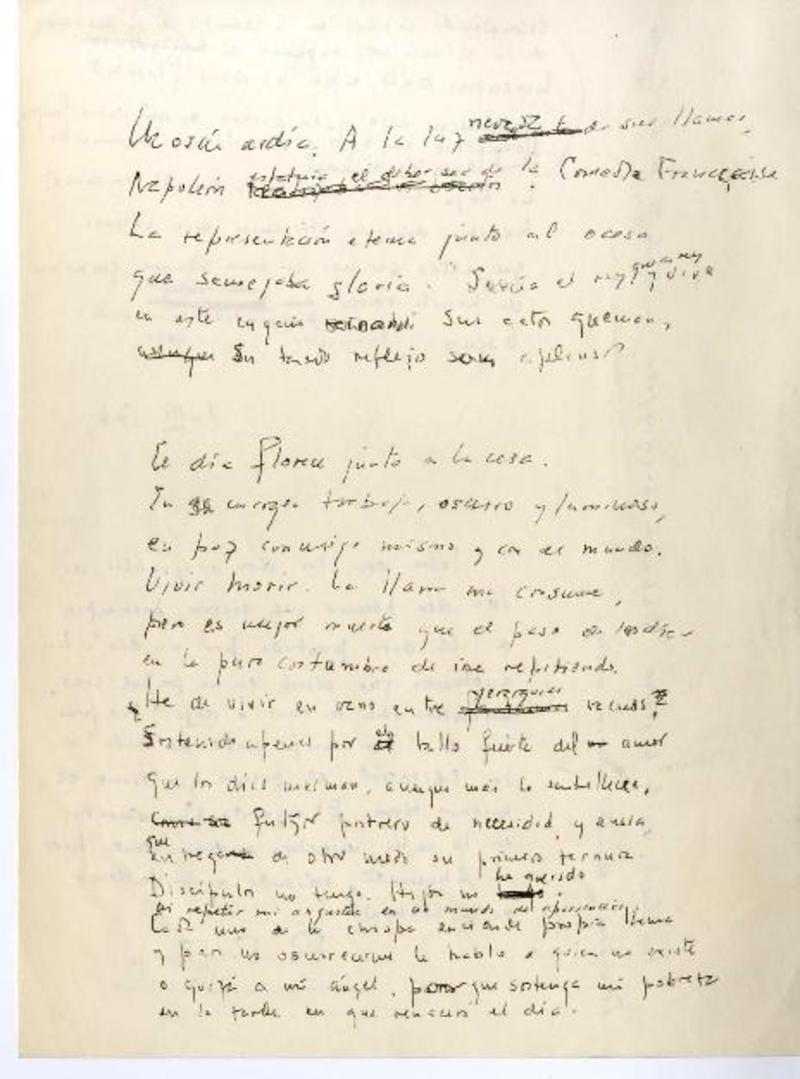 Moscú ardía. A la luz de sus llamas,
Napoleón estatuía el deber ser de la Comedia Française
La representación eterna junto al ocaso
que semejaba gloria. "Sería el rey quien vive
en este engaño Sus actos queman,
Su tardo reflejo aplauso?
El día florece junto a la casa.
En margen trabajo, oscuro y luminoso,
en paz conmigo mismo y con el mundo.
Vivir Morir. La llama me consume,
pero es mejor muerte que el peso de los días
en la pura costumbre de irse repitiendo.
¿He de vivir en vano entre jerarquías vacuas?
Sostenido apenas por el tallo fuerte del amor
que los días merman, aunque más lo embellecen,
fulgor postrero de necesidad y ansia,
que entrega de otro modo su primera ternura
Discípulos no tengo. Hijos no he querido.
ni repetir mi angustia en un mundo de apariencias.
Cada uno de la chispa enciende propia llama
y por no oscurecerme le hablo a quien no existe
o quizá a mi ángel, que sostenga mi pobreza
en la tarde en que renacerá el día.